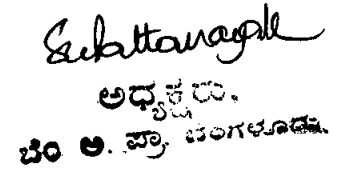 ಅಧ್ಯಕ್ಷರು.
ಬೆಂ ಅ. ಪ್ರಾ. ಬೆಂಗಳೂರು.